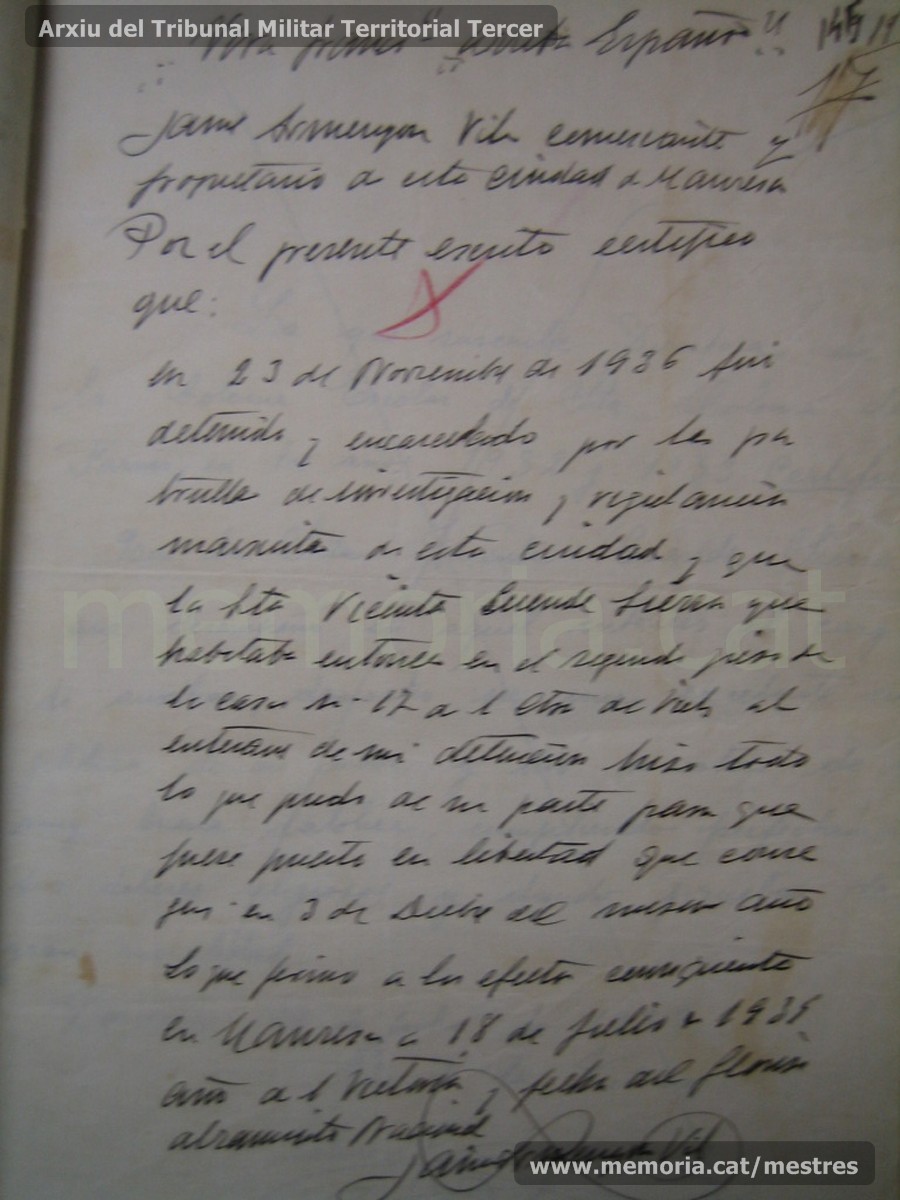 Arxiu del Tribunal Militar Territorial Tercer
¡¡Viva Franco!! ¡¡Arriba España!!
17
Jaime Armengou Vila comerciante y
propietario de esta ciudad de Manresa
Por el presente escrito certifico
que:
en 23 de Noviembre de 1936 fui
detenido y encarcelado por las pa
trullas de investigacion y vigilancia
marxista de esta ciudad y que
la Sta Vicenta Cuende Sierra que
habitaba entonces en el segundo piso de
la casa nº 17 de la Ctra de Vich al
enterarse de mi detención hizo todo
lo que pudo de su parte para que
fuese puesto en libertad que conse
guí en 3 de Dicbre del mismo año
Lo que firmo a los efectos consiguientes
en Manresa a 18 de Julio de 1939
año de la Victoria y fecha del Glorioso
alzamiento Nacional
Jaime Armengou Vila
memoria.cat
www.memoria.cat/mestres